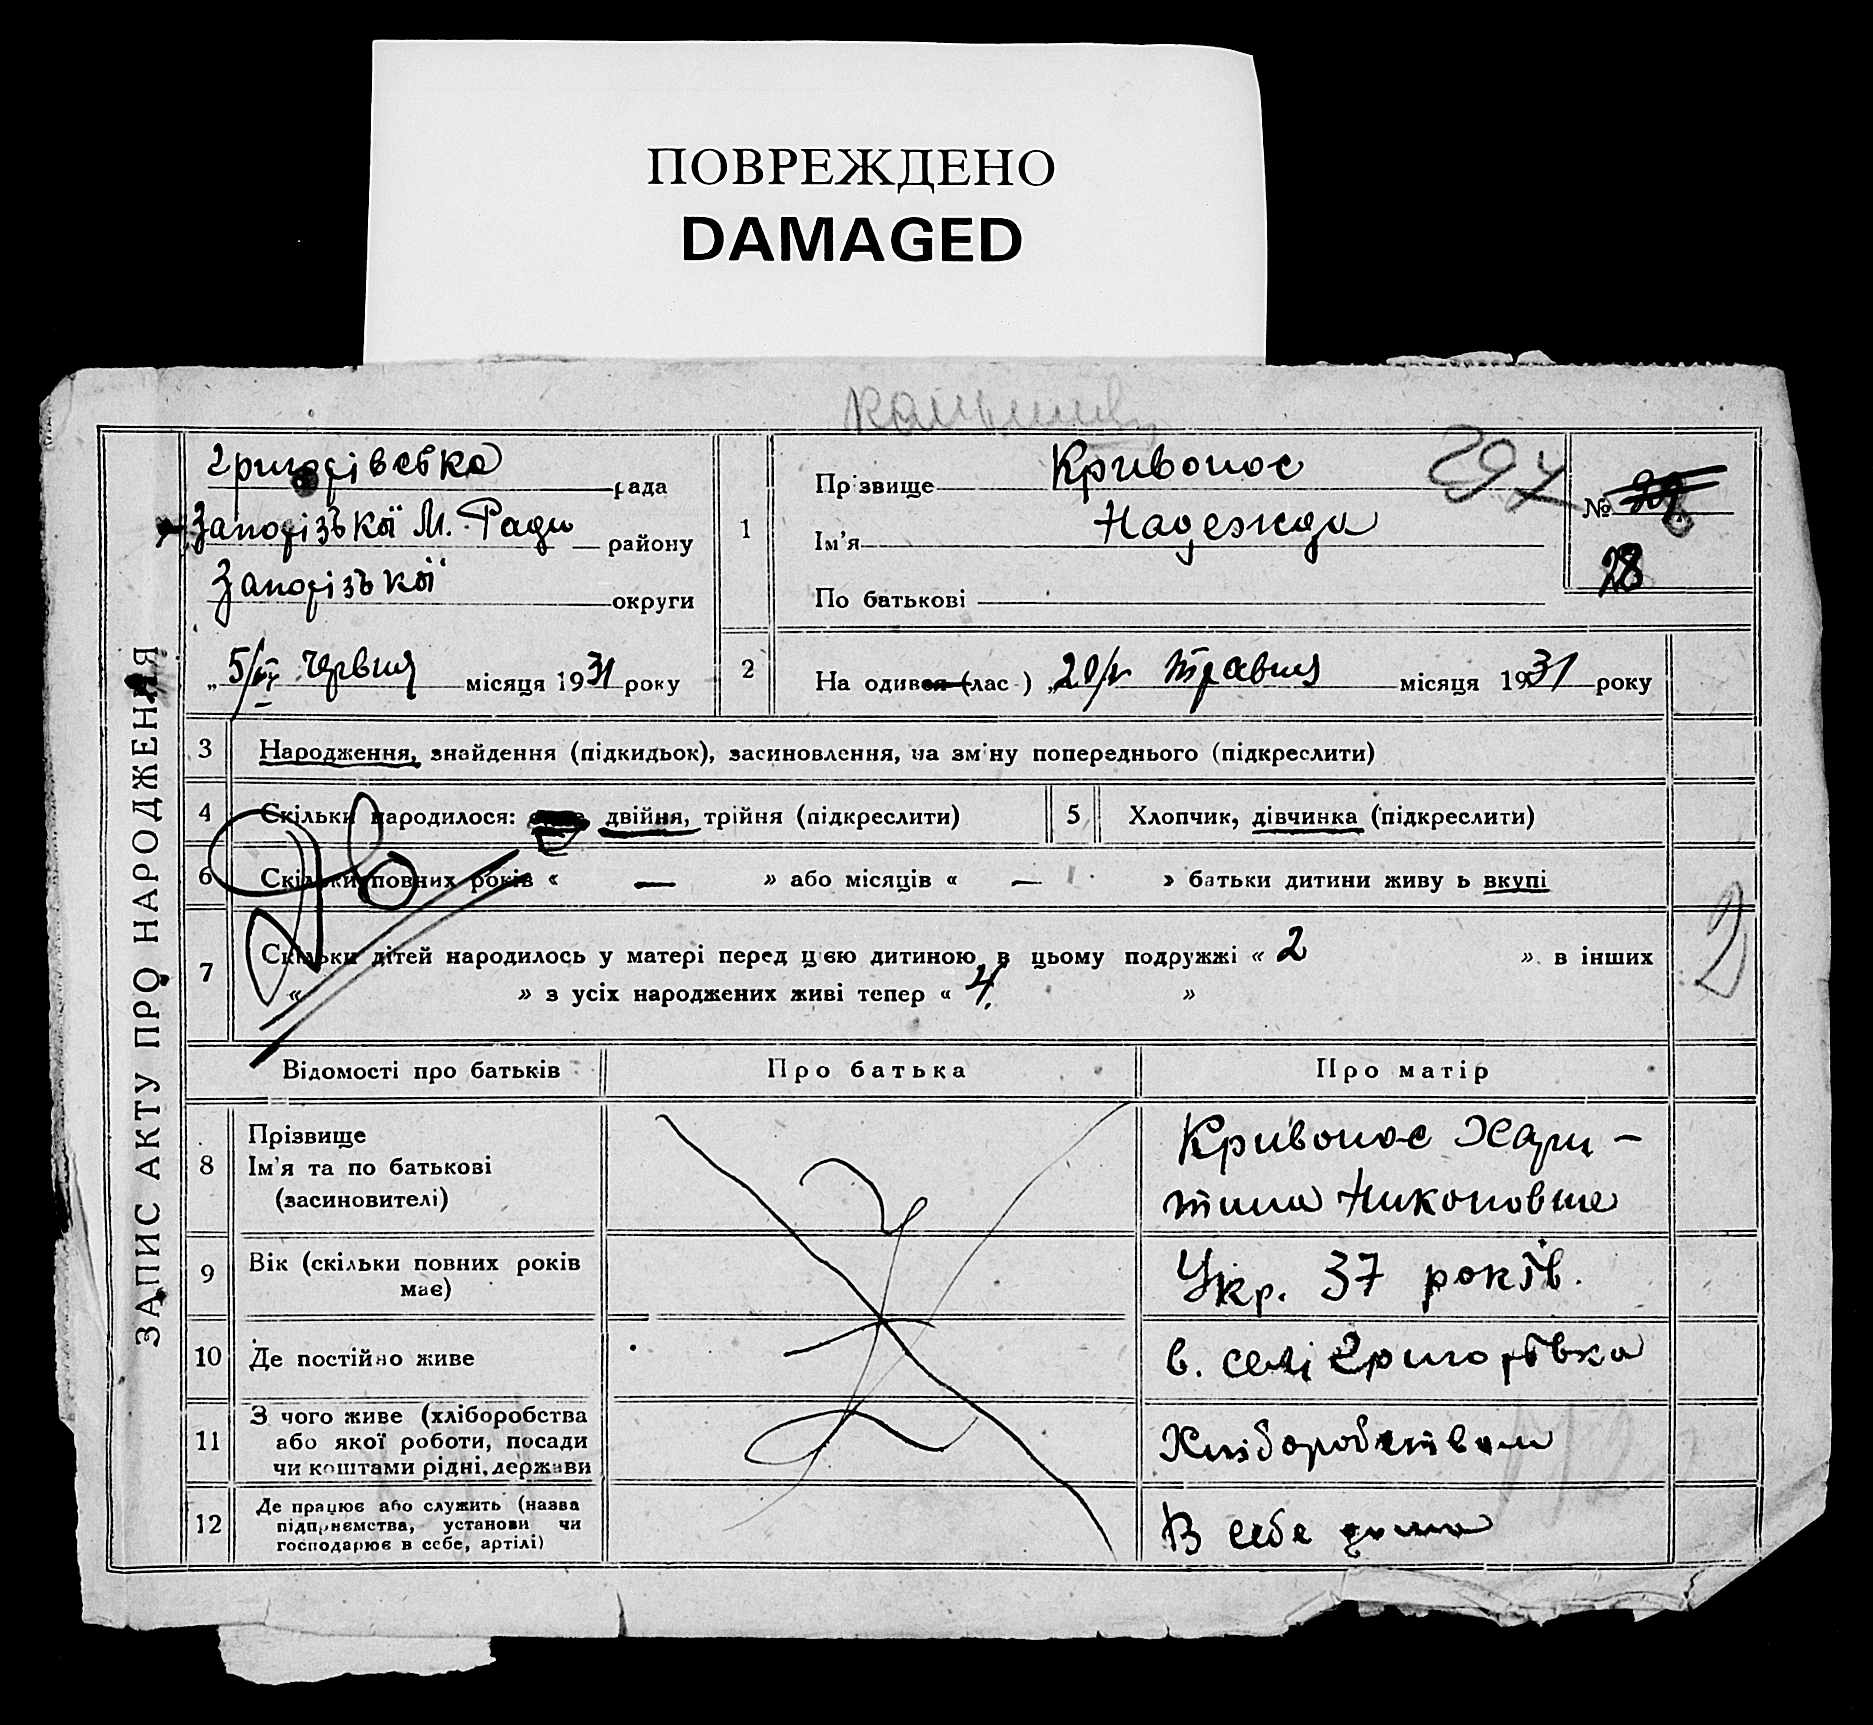 ПОВРЕЖДЕНО
DAMAGED
Григорівська рада
Запорізької М. Ради району
Запорізької округи
„5/VI червня місяця 1931 року
1
Прізвище Кривонос
297
Ім'я Надежда
По батькові
№
28
2
На один (лас ) „20/V травня місяця 1931 року
ЗАПИС АКТУ ПРО НАРОДЖЕННЯ
3 Народження, знайдення (підкидьок), засиновлення, на зміну попереднього (підкреслити)
4 Скільки народилося: двійня, трійня (підкреслити)
5 Хлопчик, дівчинка (підкреслити)
6 Скільки повних років « — » або місяців « — » батьки дитини живуть вкупі
7 Скільки дітей народилось у матері перед цією дитиною в цьому подружжі « 2 » в інших
« » з усіх народжених живі тепер « 4. »
2
Відомості про батьків Про батька Про матір
8 Прізвище
Ім'я та по батькові
(засиновителі)
Кривонос Хари-
тина Никоновне
9 Вік (скільки повних років
має)
Укр. 37 років.
10 Де постійно живе
в. селі Григорівка
11 З чого живе (хліборобства
або якої роботи, посади
чи коштами рідні, держави
Хліборобством
12 Де працює або служить (назва
підприємства, установи чи
господарює в себе, артілі)
В себе дома